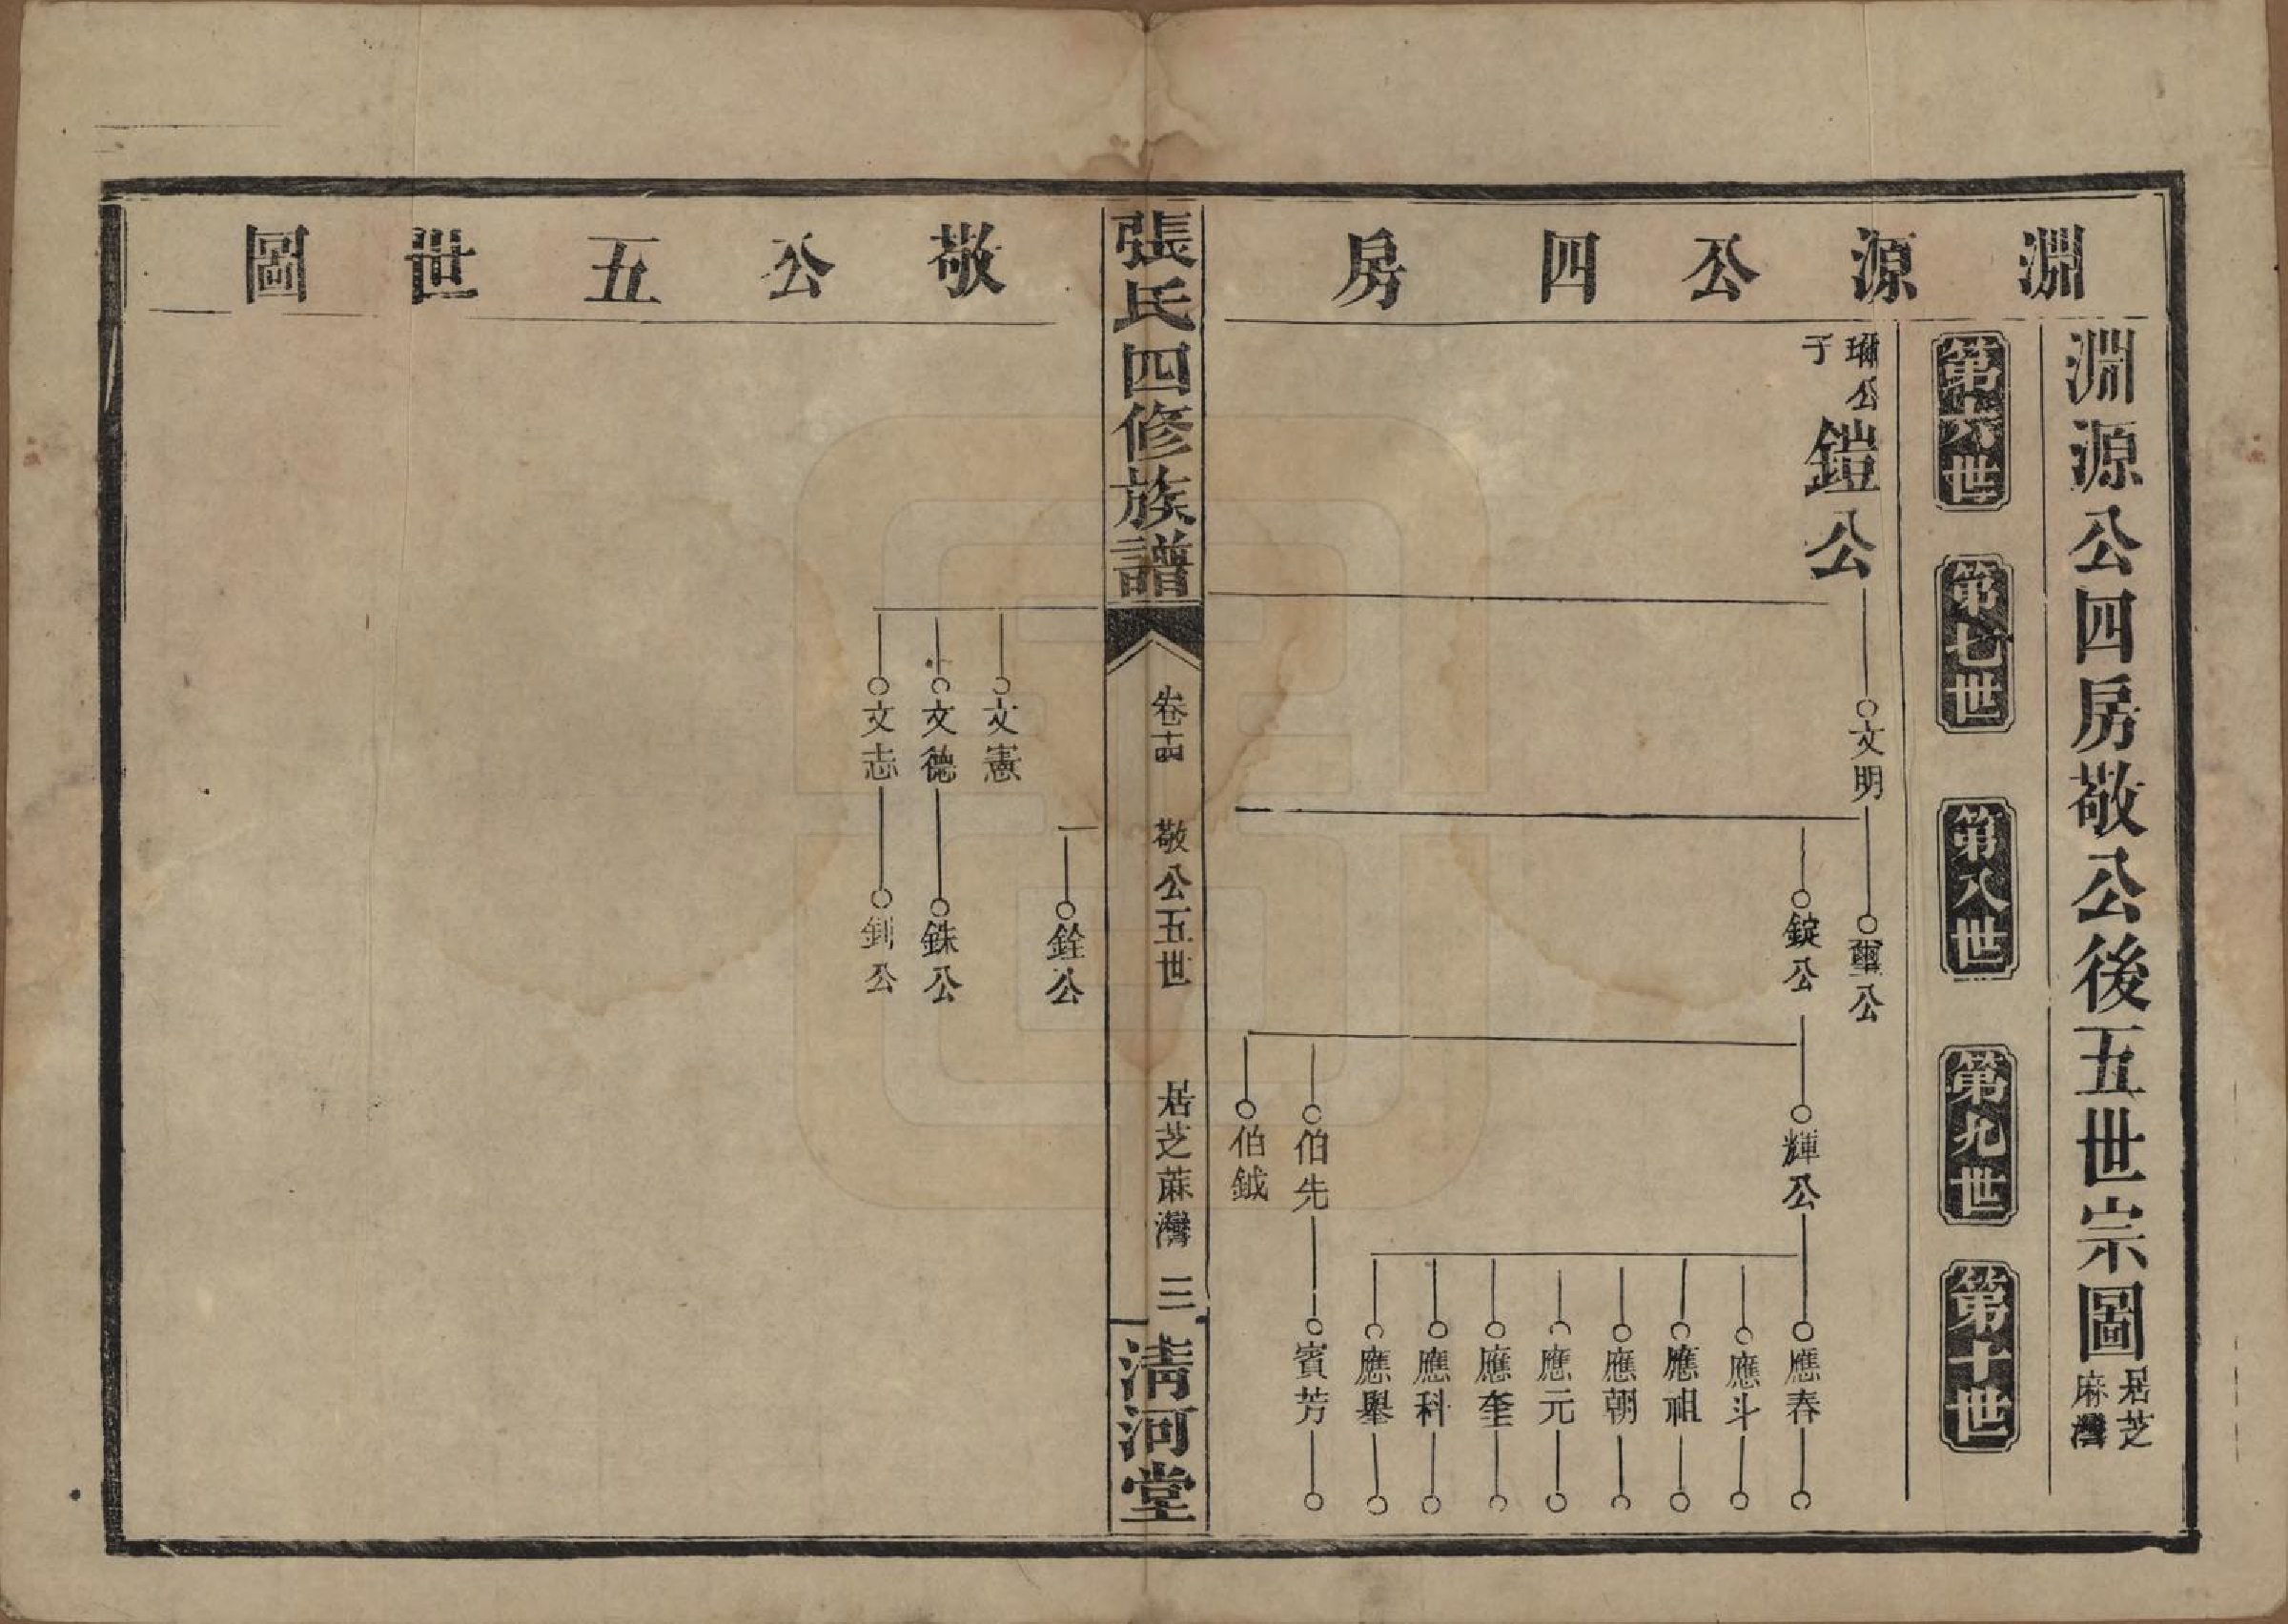 淵源公四房
淵源公四房敬公後五世宗圖
居芝
麻灣
第六世
第七世
第八世
第九世
第十世
公
子
鎧公
文明
璽公
錠公
輝公
伯先
伯鉞
應春
應斗
應祖
應朝
應元
應奎
應科
應舉
賓芳
張氏四修族譜
卷十四
敬公五世
居芝蔴灣
三
淸河堂
敬公五世圖
銓公
文憲
文德
銖公
文志
釗公